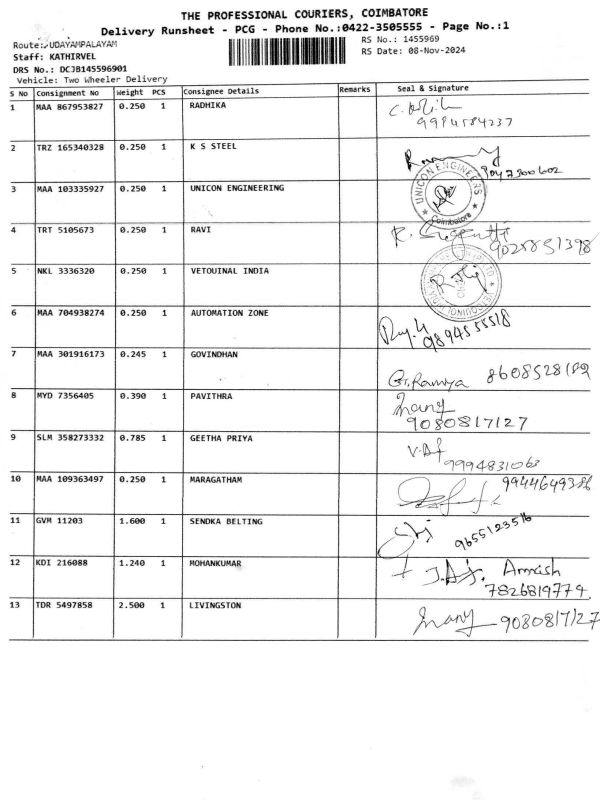 THE PROFESSIONAL COURIERS, COIMBATORE
Delivery Runsheet - PCG - Phone No.:0422-3505555 - Page No.:1
Route: UDAYAMPALAYAM
RS No.: 1455969
Staff: KATHIRVEL
RS Date: 08-Nov-2024
DRS No.: DCJB145596901
Vehicle: Two Wheeler Delivery
S No Consignment No Weight PCS Consignee Details Remarks Seal & Signature
1 MAA 867953827 0.250 1 RADHIKA
9994584237
2 TRZ 165340328 0.250 1 K S STEEL
9047300602
3 MAA 103335927 0.250 1 UNICON ENGINEERING
UNICON ENGINEERS
Coimbatore
4 TRT 5105673 0.250 1 RAVI
5 NKL 3336320 0.250 1 VETOUINAL INDIA
6 MAA 704938274 0.250 1 AUTOMATION ZONE
9894555518
7 MAA 301916173 0.245 1 GOVINDHAN
G. Ramya
8 MYD 7356405 0.390 1 PAVITHRA
9080817127
9 SLM 358273332 0.785 1 GEETHA PRIYA
9994831063
10 MAA 109363497 0.250 1 MARAGATHAM
9944649386
11 GVM 11203 1.600 1 SENDKA BELTING
9655123516
12 KDI 216088 1.240 1 MOHANKUMAR
7826819774
13 TDR 5497858 2.500 1 LIVINGSTON
9080817127